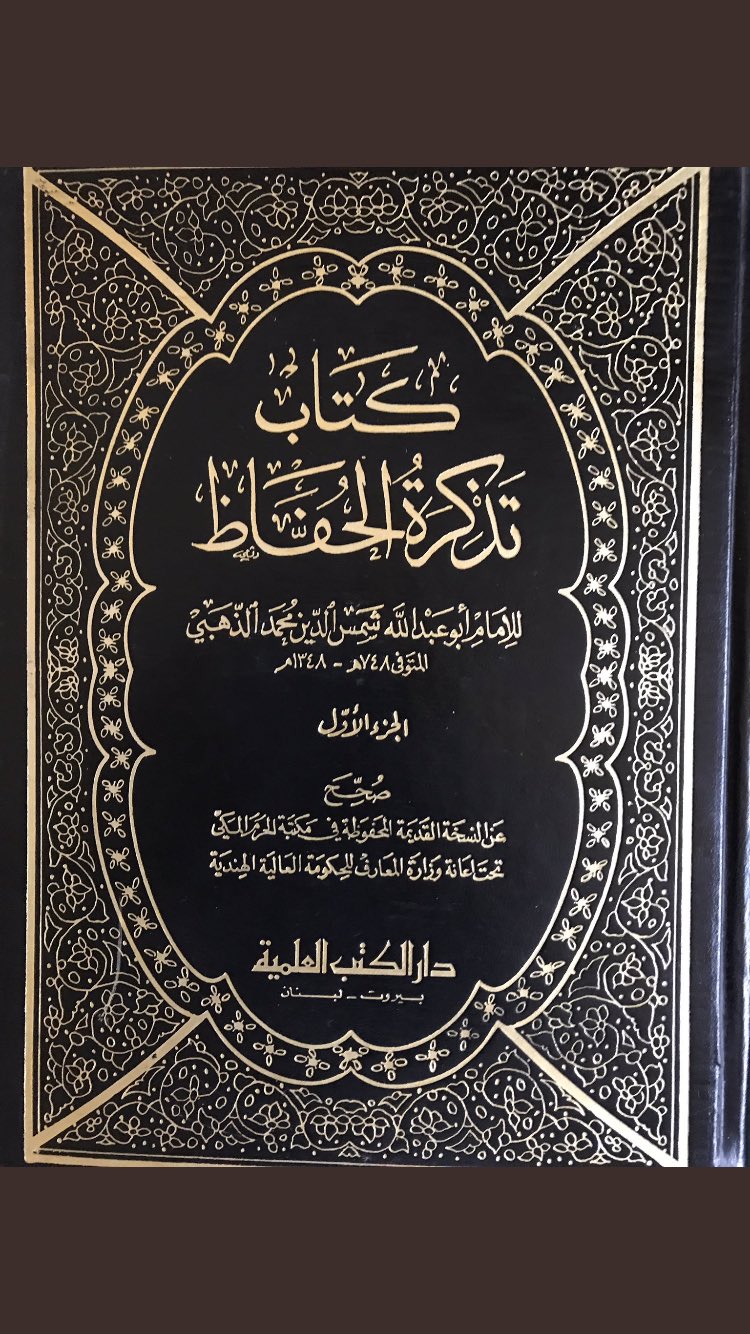 كتاب
تذكرة الحفاظ
للإمام أبو عبد الله شمس الدين محمد الذهبي
المتوفى ٧٤٨هـ - ١٣٤٨م
الجزء الأول
صُحِّحَ
عن النسخة القديمة المحفوظة في مكتبة الحرم المكي
تحت إعانة وزارة المعارف للحكومة العالية الهندية
دار الكتب العلمية
بيروت - لبنان